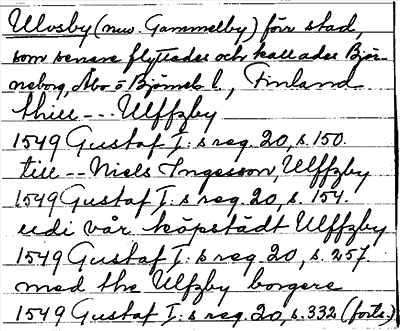 Ulvsby (nuv. Gammelby) förr stad,
som senare flyttades och kallades Björ-
neborg, Åbo o. Björneb. l., Finland
thill --- Ulffzby
1549 Gustaf I:s reg. 20, s. 150.
till -- Niels Ingesson, Ulffzby
1549 Gustaf I:s reg. 20, s. 154.
udi vår köpstädt Ulffzby
1549 Gustaf I:s reg. 20, s. 257.
med the Ulfzby borgere
1549 Gustaf I:s reg. 20, s. 332 (forts.)